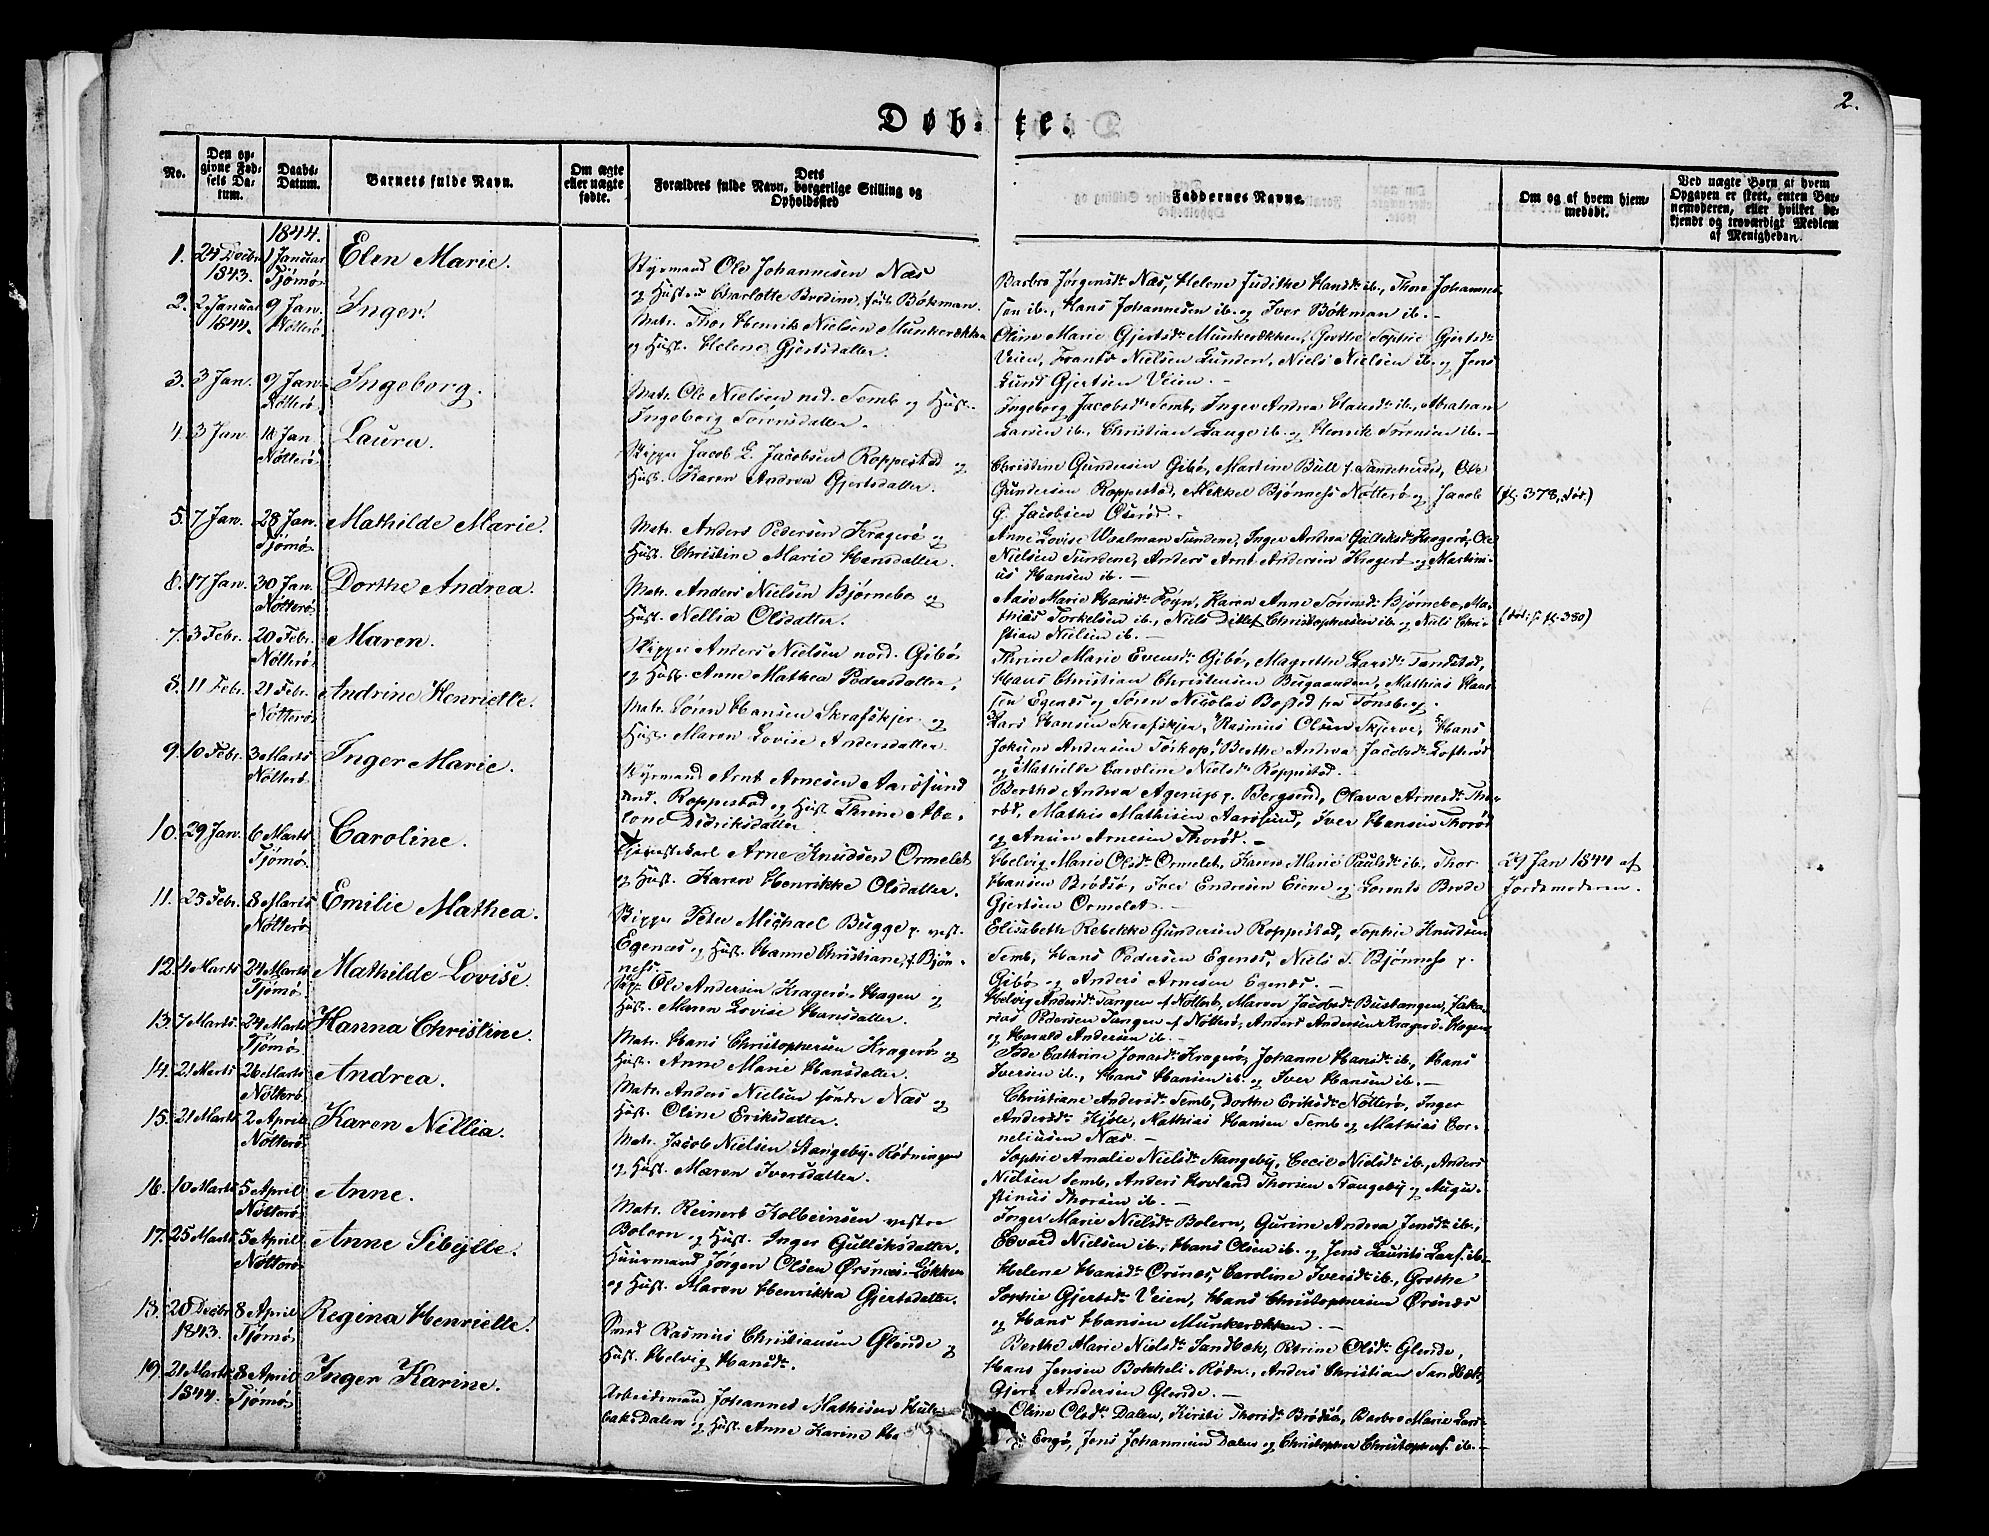 2.
Døb-te.
No.
Den opgivne Fødsels Datum.
Daabs-Datum.
Barnets fulde Navn.
Om ægte eller uægte fødte.
Dets Forældres fulde Navn, borgerlige Stilling og Opholdssted
Faddernes Navne.
Om og af hvem hjemmedøbt.
Ved uægte Børn af hvem Opgaven er skeet, enten Barnemoderen, eller hvilket bekjendt og troværdigt Medlem af Menigheden.
1844.
1. 24 Decbr 1843. 1 Januar Tjømø Elen Marie.
Styrmand Ole Johannesen Næs
og Hustru Charlotte Bredine, føb. Bøkman.
Barbro Jørgensdr Næs, Helene Judithe Hansdr ib., Thore Johannesen ib., Hans Johannesen ib. og Iver Bøkman ib. –
2. 2 Januar 1844. 9 Jan. Nøtterø Inger.
Matr. Thor Henrik Nielsen Munkerækken
og Hust. Helene Gjertsdatter.
Oline Marie Gjertsdr Munkerækken, Grethe Sophie Gjertsdr
Veien, Frants Nielsen Lunden, Niels Nielsen ib. og Jens
Lund Gjertsen Veien. –
3. 3 Jan. 9 Jan. Nøtterø Ingeborg.
Matr. Ole Nielsen ned. Semb og Hust.
Ingeborg Sørensdatter.
Ingeborg Jacobsdr Semb, Inger Andrea Hansdr ib., Abraham
Larsen ib., Christian Lange ib. og Henrik Sørensen ib. –
4. 3 Jan 18 Jan Nøtterø Laura.
Skipper Jacob L. Jacobsen Roppestad og
Hust. Karen Andrea Gjertsdatter.
Christine Gundersen Gibø, Martine Bull f. Sandeherred, Ole
Gundersen Roppestad, Mikkel Bjønness Nøtterø og Jacob
G. Jacobsen Oserød. –
5. 7 Jan. 28 Jan. Tjømø Mathilde Marie.
Matr. Anders Pedersen Kragerø og
Hust. Christine Marie Hansdatter.
Anne Lovise Nielsen Sundene, Anders Arnt Andersen Kragerø og Martinius Hansen ib. –
6. 17 Jan. 30 Jan. Nøtterø Dorthe Andrea.
Matr. Anders Nielsen Bjørnebo og
Hust. Nellia Olsdatter.
Aase Marie Hansdr Føyn, Karen Anne Sørensdr Bjørnebo, Mathias Torkelsen ib., Niels Ditlef Christophersen ib. og Niels Christian Nielsen ib. –
7. 3 Febr. 20 Febr. Nøtterø Maren.
Skipper Anders Nielsen nord. Gibø
og Hust. Anne Mathea Pedersdatter.
Thrine Marie Evensdr Gibø, Magrethe Larsdr
Hans Christian Christensen Bugaarden, Mathias Hansen Egenes og Søren Nicolai fra Tønsberg.
8. 11 Febr. 21 Febr. Nøtterø Andrine Henriette.
Matr. Søren Hansen Skrafskjer og
Hust. Maren Lovise Andersdatter.
Lars Hansen Skrafskjer, Rasmus Olsen Skjerve, Hans
Andersen Torkop, Berthe Andrea Jacobsdr Lofterød
og Mathilde Caroline Nielsdr Roppestad. –
9. 10 Febr. 3 Marts Nøtterø Inger Marie.
Styrmand Arnt Arnesen Aarøsund
Roppestad og Hust. Thrine Abelone Didriksdatter.
Berthe Andrea Agerup p. Bergsrud, Olava Arnesdr Thorød, Mathis Mathisen Aarøsund, Iver Hansen Thorød
og Anun Arnesen Thorød. –
10. 29 Jan. 6 Marts Tjømø Caroline.
Tjenestekarl Arne Knudsen Ormelet
og Hust. Karen Henrikke Olsdatter.
Helvig Marie Olsdr Ormelet, Karen Marie Paulsdr ib., Thor
Hansen Brødsø, Iver Endresen Eiene og Lorents Brode
Gjertsen Ormelet. –
29 Jan 1844 af Jordemoderen.
11. 25 Febr. 8 Marts Nøtterø Emilie Mathea.
Skipper Peter Michael Bugge p. vest.
Egenæs og Hust. Hanne Christiane, f. Bjønness.
Elisabeth Rebekke Gundersen Roppestad, Sophie Knudsen
Semb, Hans Pedersen Egenes, Niels S. Bjønness p.
Gibø og Anders Arnesen Egenæs. –
12. 4 Marts 24 Marts Tjømø Mathilde Lovise.
Skip. Ole Andersen Kragerø-Hagen og
Hust. Maren Lovise Hansdatter.
Helvig Andersdr Tangen af Nøtterø, Maren Jacobsdr Bustangen, Zakarias Pedersen Tangen af Nøtterø, Anders Andersen Kragerø-Hagen
og Harald Andersen ib. –
13. 7 Marts 24 Marts Tjømø Hanna Christine.
Matr. Hans Christophersen Kragerø og
Hust. Anne Marie Hansdatter.
Cathrine Jonasdr Kragerø, Johanne Hansdr ib., Hans
Iversen ib., Hans Hansen ib. og Iver Hansen ib. –
14. 21 Marts 26 Marts Nøtterø Andrea.
Matr. Anders Nielsen søndre Næs og
Hust. Oline Eriksdatter.
Christiane Andersdr Semb, Dorthe Eriksdr Nøtterø, Inger
Andersdr Kjøle, Mathias Hansen Semb og Mathias Corneliusen Næs. –
15. 21 Marts 2 April Nøtterø Karen Nillia.
Matr. Jacob Nielsen Stangeby-Rødningen
og Hust. Maren Iversdatter.
Sophie Amalie Nielsdr Stangeby, Cecil Nielsdr ib., Anders
Nielsen Semb, Anders Hovland Thorsen Stangeby og Augustinus Thorsen ib. –
16. 10 Marts 5 April Nøtterø Anne.
Matr. Reinert Kolbeinsen vestre
Bolern og Hust. Inger Gulliksdatter.
Inger Marie Nielsdr Bolern, Gurine Andrea Jensdr ib.,
Edvard Nielsen ib., Hans Olsen ib. og Jens Laurits Lars. ib. –
17. 25 Marts 5 April Nøtterø Anne Sibylle.
Huusmand Jørgen Olsen Ørsnæs-Løkken
og Hust. Maren Henrikka Gjertsdatter.
Helene Hansdr Ørsnæs, Caroline Iversdr ib., Grethe
Sophie Gjertsdr Veien, Hans Christophersen Ørsnæs
og Hans Hansen Munkerækken. –
18. 20 Decbr 1843. 8 April Tjømø Regina Henriette.
Smed Rasmus Christiansen Glende og
Hust. Helvig Hansdr.
Berthe Marie Nielsdr Sandbæk, Petrine Olsdr Glende,
Hans Jensen Bekkeli-Rødn., Anders Christian Sandbæk,
Gjert Andersen Glende. –
19. 21 Marts 1844. 8 April Tjømø Inger Karine.
Arbeidsmand Johannes Mathisen Hulebak-Dalen og Hust. Anne Karine Ha
Oline Olsdr Dalen, Kirsti Thorsdr Brødsø, Barbro Marie Larsdr Engø, Jens Johannesen Dalen og Christopher Christophers. ib. –